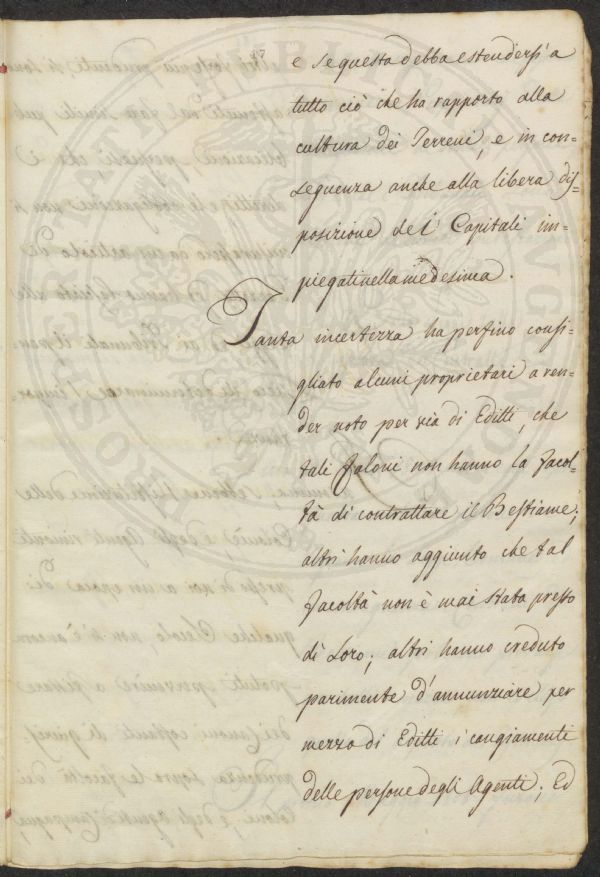 17
e se questa debba estendersi a
tutto ciò che ha rapporto alla
cultura dei Terreni, e in con-
seguenza anche alla libera dis=
posizione dei Capitali im-
piegati nella medesima.
Tanta incertezza ha perfino consi-
gliato alcuni proprietari a ren-
der noto per via di Editti, che
tali Faloni non hanno la facol-
tà di contrattare il Bestiame;
altri hanno aggiunto che tal
facoltà non è mai stata presso
di Loro; altri hanno creduto
parimente d'annunziare per
mezzo di Editti i cangiamenti
delle persone degli Agenti; Ed